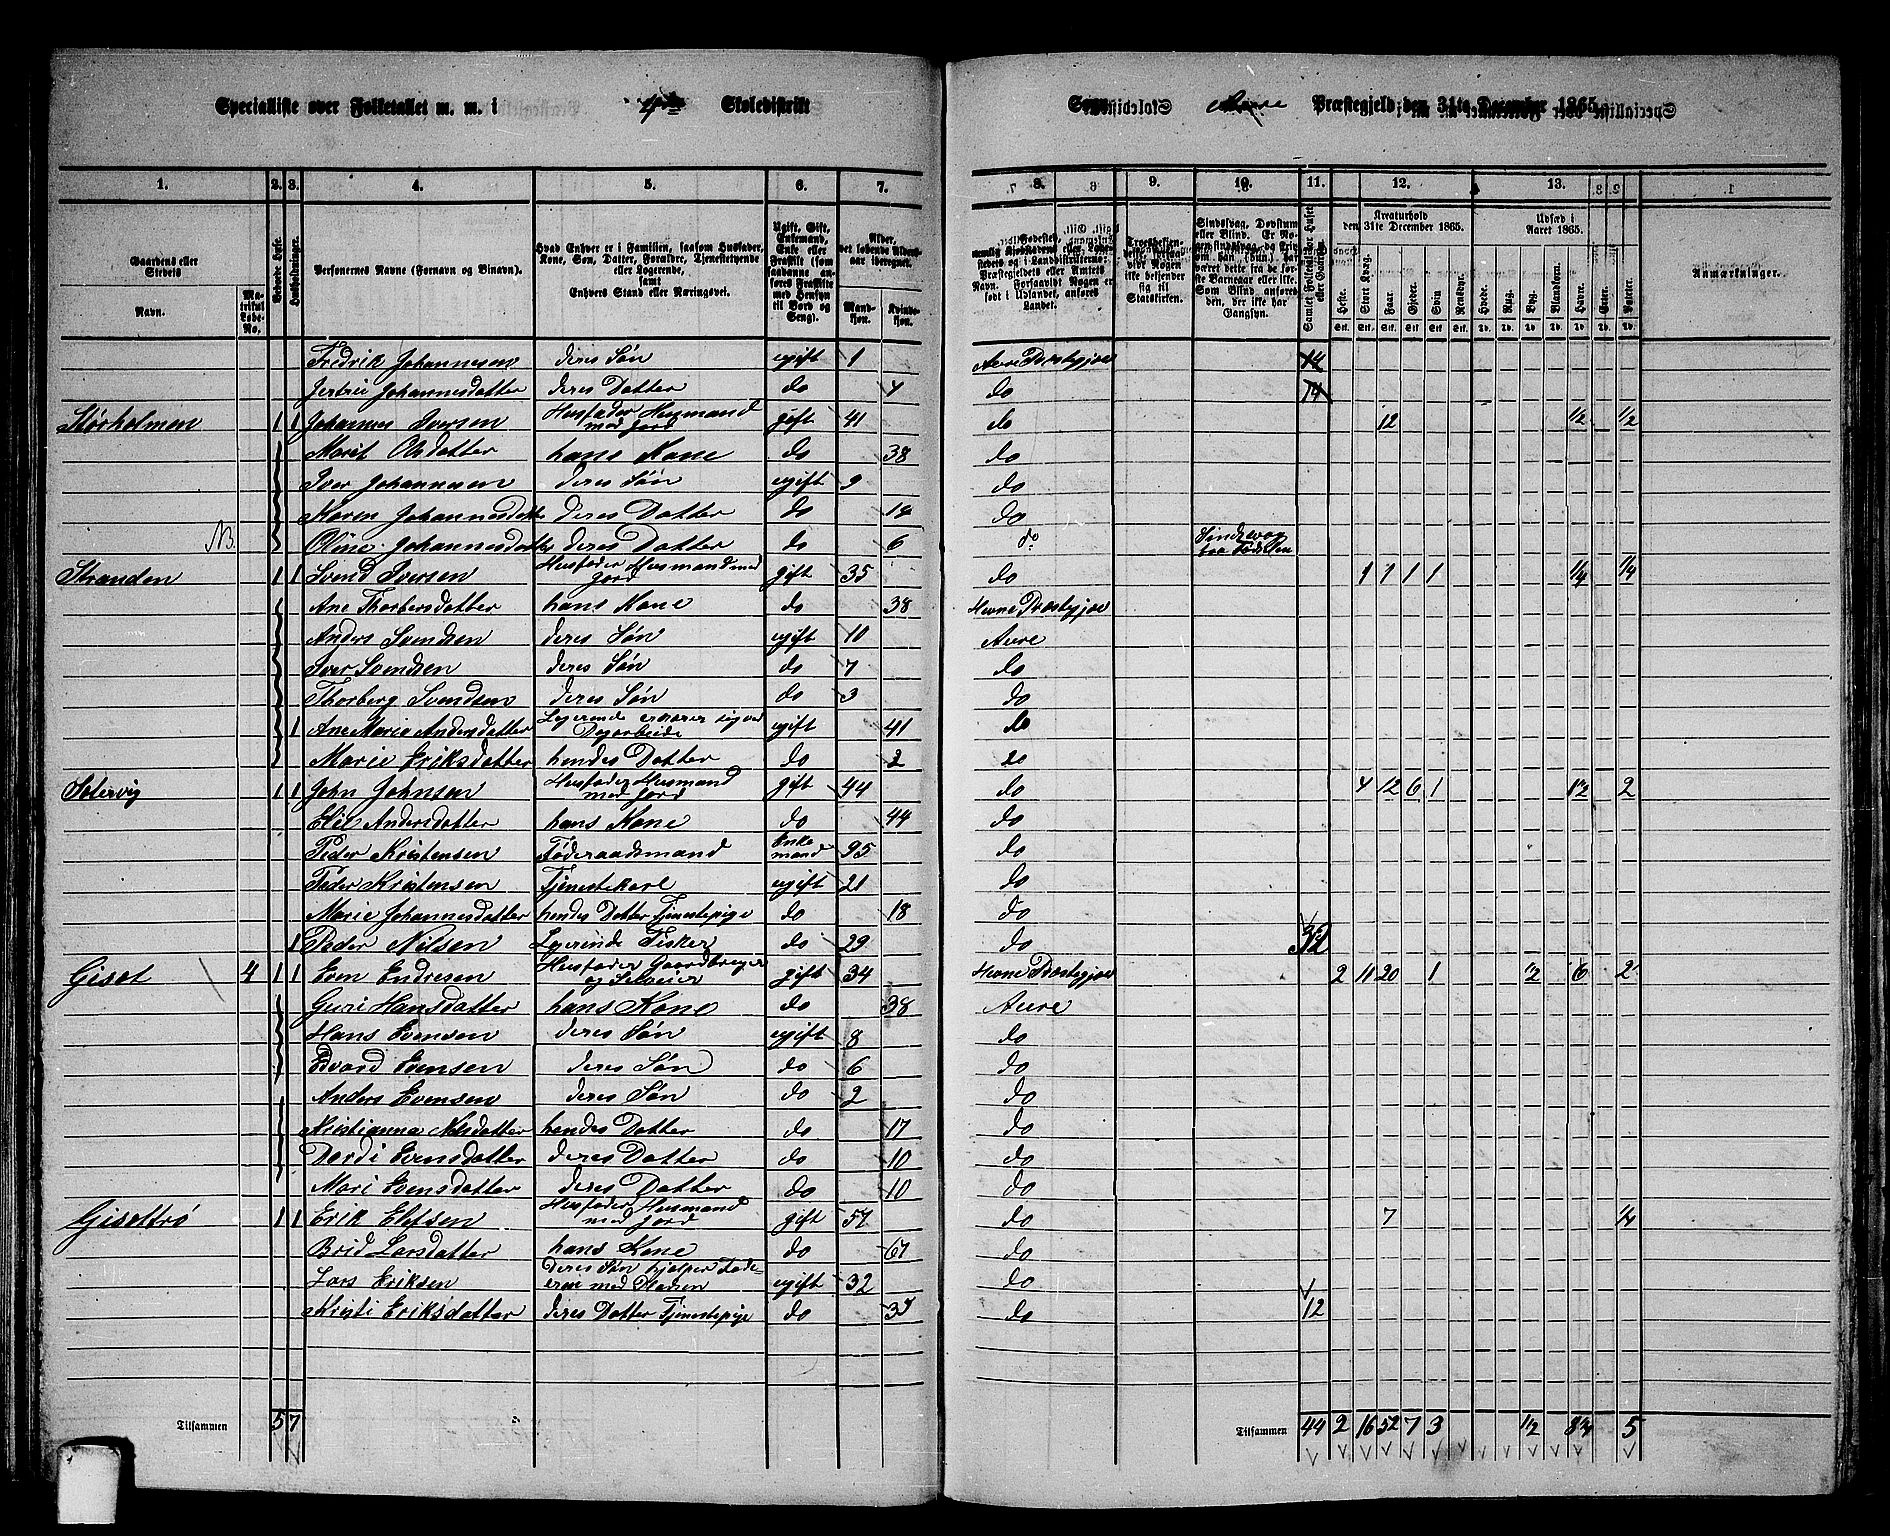 Specialliste over Folketallet m. m. i 4de Skoledistrikt Sogn Aure Præstegjeld den 31te December 1865.
1. 2. 3. 4. 5. 6. 7. 8. 9. 10. 11. 12. 13.
Gaardens eller Stedets Navn. Matrikul Løbe-No. Beboede Huse. Husholdninger. Personernes Navne (Fornavn og Tilnavn). Hvad Enhver er i Familien, saasom Husfader, Kone, Søn, Datter, Forældre, Tjenestetyende eller Logerende, samt Enhvers Stand eller Næringsvei. Ugift, Gift, Enkemand, Enke eller Fraskilt Alder, det løbende Aldersaar iberegnet. Mandkøn. Kvindekøn.
Kreaturhold den 31te December 1865. Udsæd i Aaret 1865. Anmærkninger.
Heste. Stort Kvæg. Faar. Gjeder. Svin. Rensdyr. Hvede. Rug. Byg. Blandkorn. Havre. Erter. Poteter.
Fredrik Johannesen deres Søn ugift 1 Aure Præstegjæ 14
Jertrie Johannesdatter deres Datter do 4 do 14
Størholmen 1 1 Johannes Iversen Husfader Husmand med Jord gift 41 do 12 1/2 1/2
Marit Olsdatter hans Kone do 38 do
Iver Johannesen deres Søn ugift 9 do
Maren Johannesdatte deres Datter do 14 do
NB. Oline Johannesdatter deres Datter do 6 do Sindsvag fra Fødselen
Stranden 1 1 Svend Iversen Husfader Husmand med Jord gift 35 do 1 1 1 1 1/4 1/4
Ane Thorbersdatter hans Kone do 38 Hevne Præstegjæ
Anders Svendsen deres Søn ugift 10 Aure
Iver Svendsen deres Søn do 7 do
Thorberg Svendsen deres Søn do 3 do
1 Ane Marie Andersdatter Logerende ernærer sig ved Dagarbeide ugift 41 do
Marie Eriksdatter hendes Datter do 2 do
Setervig 1 1 John Johnsen Husfader Husmand med Jord gift 44 do 4 12 6 1 1 1/2 2
Elil Andersdatter hans Kone do 44 do
Peder Kristensen Føderaadsmand Enke mand 95 do
Peder Kristensen Tjenestekarl ugift 21 do
Marie Johannesdatter hendes Datter Tjenestepige do 18 do
1 Peder Nilsen Logerende Fisker do 29 do
Giset 4 1 1 Even Endresen Husfader Gaardbruger og Selveier gift 34 Hevne Præstegjæ 2 11 20 1 1/2 6 2
Guri Hansdatter hans Kone do 38 Aure
Hans Evensen deres Søn ugift 8 do
Edvard Evensen deres Søn do 6 do
Anders Evensen deres Søn do 2 do
Kristianna Nelsdatter hendes Datter do 17 do
Dordi Evensdatter deres Datter do 10 do
Mari Evensdatter deres Datter do 10 do
Gisettrø 1 1 Erik Elefsen Husfader Husmand med Jord gift 57 do 7 1/4
Brid Larsdatter hans Kone do 67 do
Lars Eriksen deres Søn hjelper Fade- ren med Pladsen ugift 32 do
Kristi Eriksdatter deres Datter Tjenestepige do 35 do 12
Tilsammen 5 7 Tilsammen 44 2 16 52 7 3 1/2 8 1/4 5